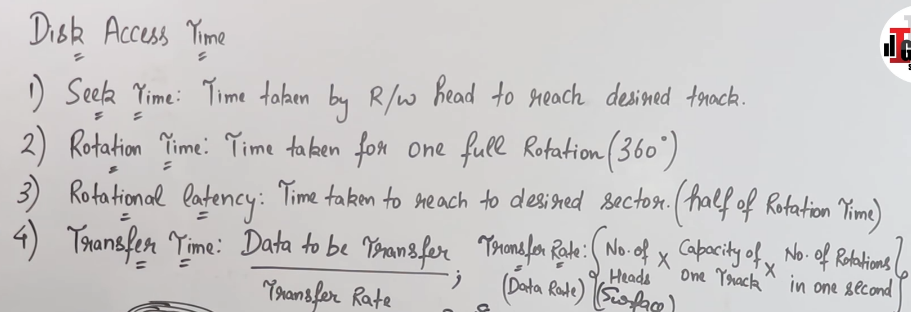 Disk Access Time
1) Seek Time: Time taken by R/w head to reach desired track.
2) Rotation Time: Time taken for one full Rotation (360°)
3) Rotational latency: Time taken to reach to desired sector. (half of Rotation Time)
4) Transfer Time: Data to be Transfer / Transfer Rate ; Transfer Rate: {No. of Heads × Capacity of one Track × No. of Rotations in one second}
(Data Rate) (Surface)